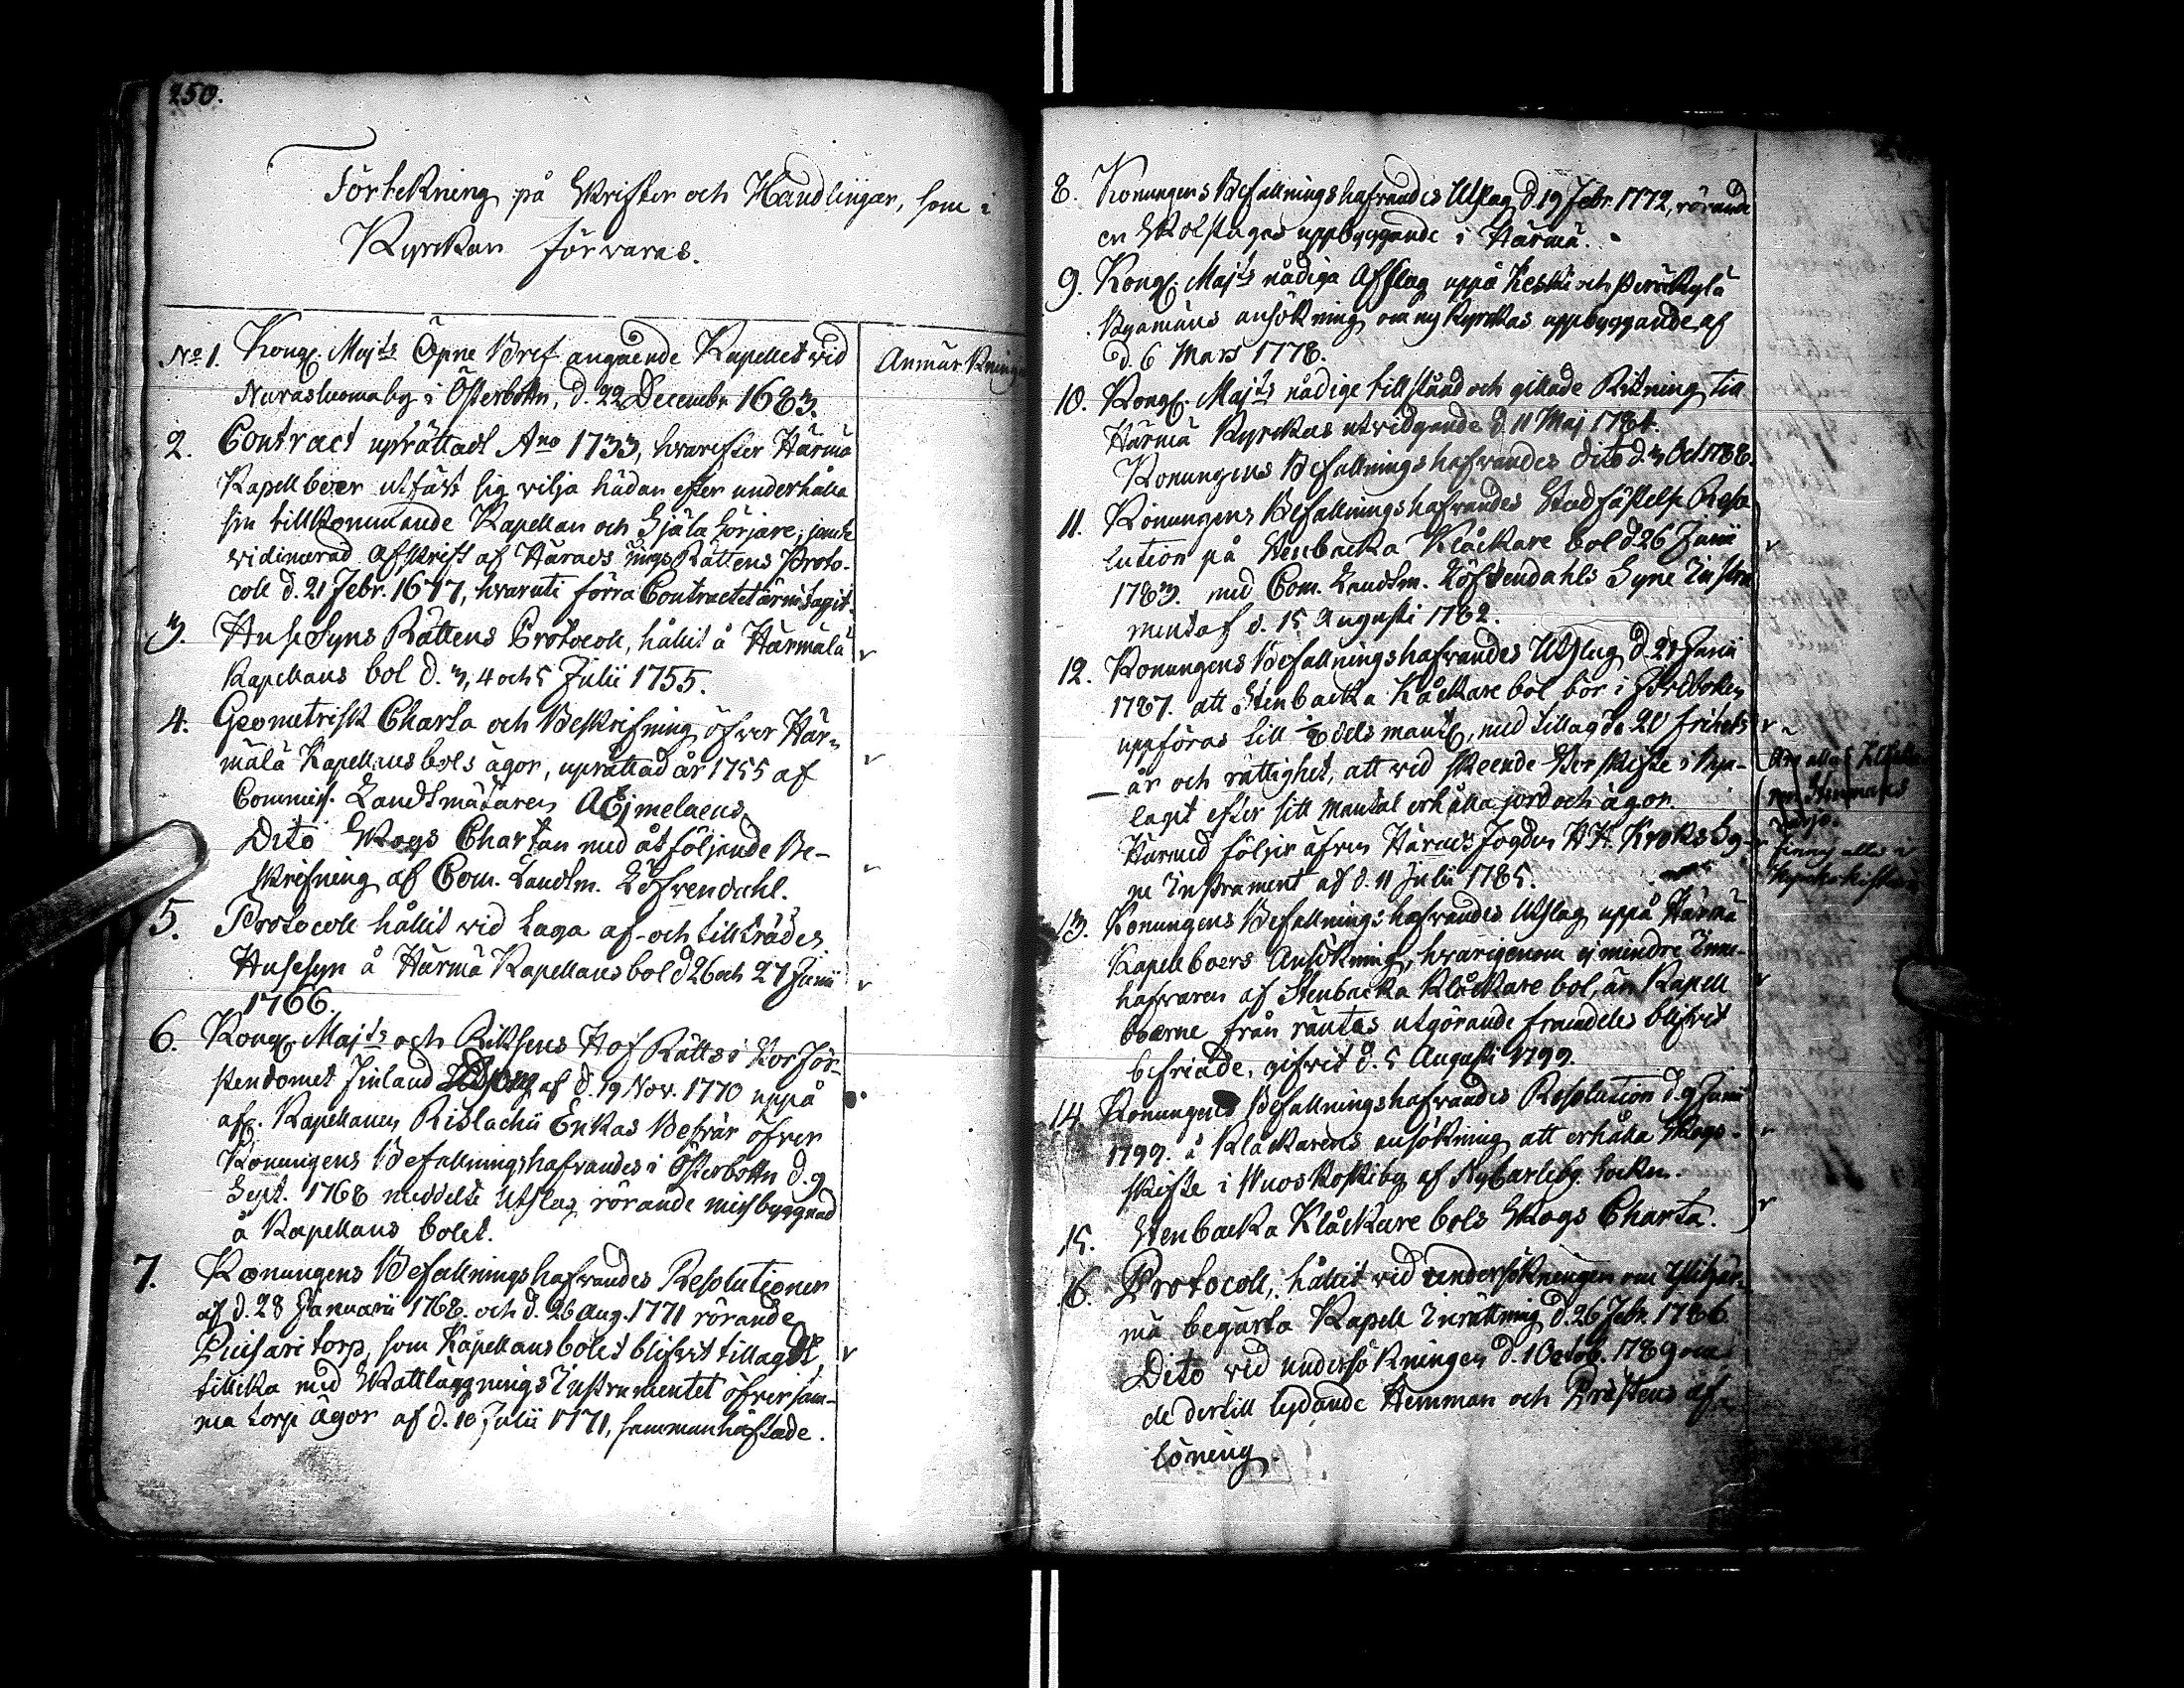 250.
Förtekning på Skrifter och Handlingar, som i
Kyrkan förvaras.
Anmärkning
No 1. Kongl. Majts Öpne Bref angaende Kapellet vid
by i Österbottn, d. 22 Decembr 1683.
2. Contract uprättadt Ano 1733, hvarefter Härmä
Kapellboer utfäst sig vilja hädan efter underhålla
sin tillkommande Kapellan och Själa Sörjare, samt
vidimerad Afskrift af Härads Tings Rättens Proto-
coll d. 21 Febr. 1677, hvaruti förra Contractet är intagit.
3. HuseSyns Rättens Protocoll, hållit å Härmälä
Kapellans bol d. 3, 4 och 5 Julii 1755.
4. Geometrisk Charta och Beskrifning öfver Här-
mälä Kapellansbols ägor, uprättad år 1755 af
Commiss. Landtmätaren A Ejmelaeus.
Dito Skogs Chartan med åtföljande Be-
skrifning af Com. Landtm. Löfvendahl.
5. Protocoll hållit vid Laga af- och tillträdes
Husesyn å Härmä Kapellansbol d 26 och 27 Junii
1766.
6. Kongl. Majts och Riksens Hof Rätts i StorFör-
stendömet Finland Utslag af d. 19 Nov. 1770 uppå
afl. Kapellanen Rislachii Enkas Besvär öfver
Konungens Befallningshafvandes i Österbottn d. 9
Sept. 1768 meddelte Utslag rörande missbyggnad
å Kapellans bolet.
7. Konungens Befallningshafvandes Resolutioner
af d. 28 Januarii 1768. och d. 26 Aug. 1771 rörande
torp, som Kapellansbolet blifvit tillagdt,
tillika med SkattläggningsInstrumentet öfver sam-
ma torp ägor af d. 10 Julii 1771, sammanhäftade.
8. Konungens Befallningshafvandes Utslag d. 19 Febr. 1772, rörande
en uppbyggande i Härmä.
9. Kongl. Majts nådiga Afslag uppå Keski och Peräkylä
Byamäns ansökning om ny Kyrckas uppbyggande af
d. 6 Mars 1778.
10. Kongl. Majts nådige tillstånd och gillade Ritning till
Härmä Kyrckas utvidgande d. 11 Maj 1784.
Konungens Befallningshafvandes dito d. 3 Oct 1788.
11. Konungens Befallningshafvandes Stadfästelse Reso-
lution på Stenbacka Klåckare bol d 26 Junii
1783. med Com. Landtm. Löfvendahls Syne Instru-
ment af d. 15 Augusti 1782.
12. Konungens Befallningshafvandes Utslag d. 21 Junii
1787. att Stenbacka Klåckare bol bör i Jordboken
uppföras till 1/8 dels mantl, med tillagde 20 frihets
år och rättighet, att vid skeende Storskifte i
laget efter sitt Mantal erhålla jord och ägor.
Härmed följer äfven Härads Fogden H H. Kroks Sy-
ne Instrument af d. 11 Julii 1785.
13. Konungens Befallningshafvandes Utslag uppå Härmä
Kapellboers Ansökning, hvarigenom ej mindre Inne-
hafvaren af Stenbacka Klåckare bol, än Kapell
boerne från räntas utgörande framdeles blifvit
befriade, gifvit d. 5 Augusti 1799.
14. Konungens Befallningshafvandes Resolution d. 9 Junii
1799. å Klåckarens ansökning att erhålla Skogs-
skifte i Wuoskoski by af Nykarleby Sockn.
15. Stenbacka Klåckare bols Skogs Charta.
16. Protocoll, hållit vid undersökningen om Ylihär-
mä begärta Kapell Inrättning d. 26 Febr. 1786
Dito vid undersökningen d. 1 Octob. 1789
de dertill lydande Hemman och Prästens af-
löning.
finnes alla i
Kyrckokistan